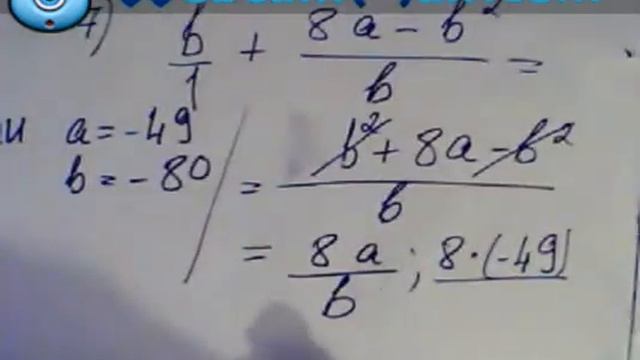 7) b/1 + (8a - b²)/b =
и a = -49
b = -80
= (b² + 8a - b²)/b
= 8a/b ; 8·(-49)